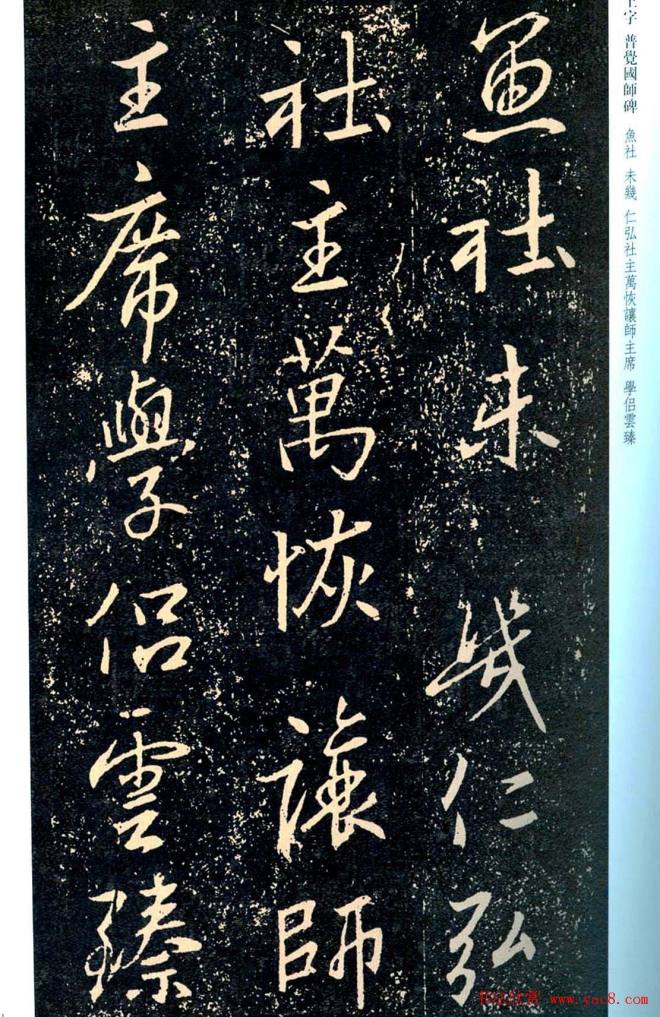 魚社未幾仁弘
社主萬恢讓師
主席學侶雲臻
王字 普覺國師碑 魚社 未幾 仁弘社主萬恢讓師主席 學侶雲臻
书法欣赏 www.yac8.com